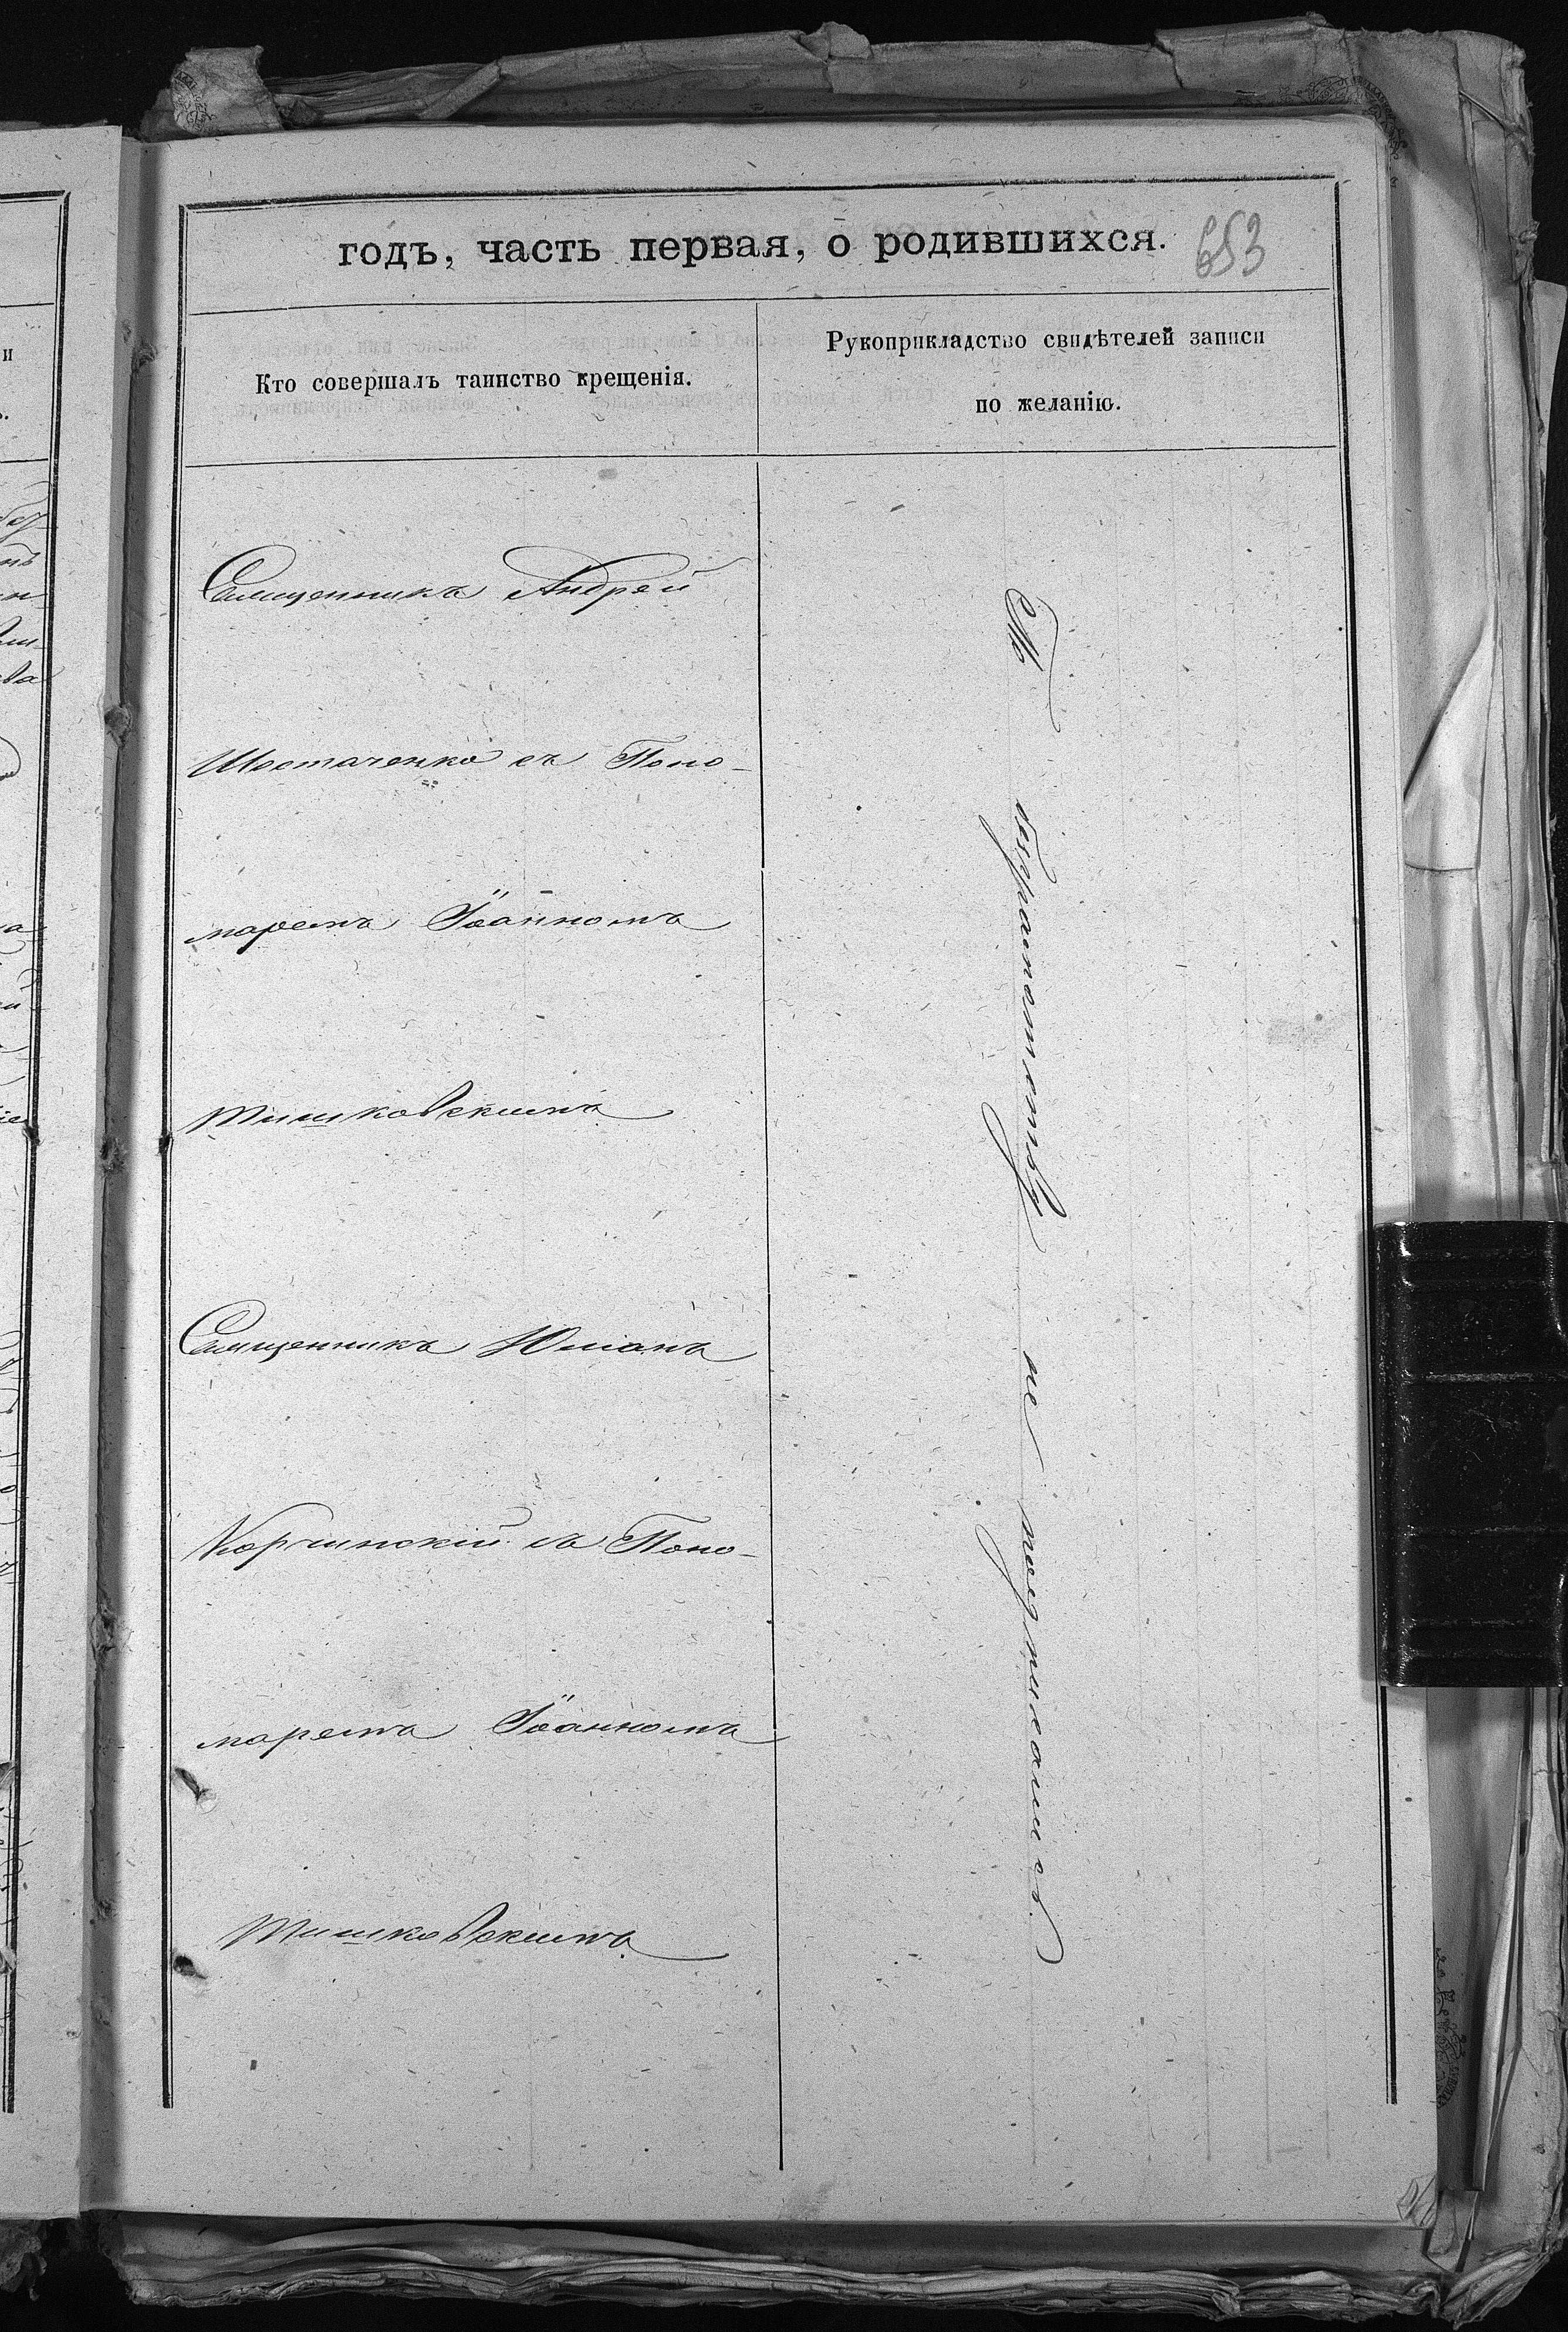 годъ, часть первая, о родившихся.
653
Кто совершалъ таинство крещенія.
Рукоприкладство свидѣтелей записи
по желанію.
Священникъ Андрей
Шостаченко съ Поно-
маремъ Іоанномъ
Тишковскимъ
Священникъ Юліанъ
Корчинскій съ Поно-
маремъ Іоанномъ
Тишковскимъ
По безграмотству не подписались